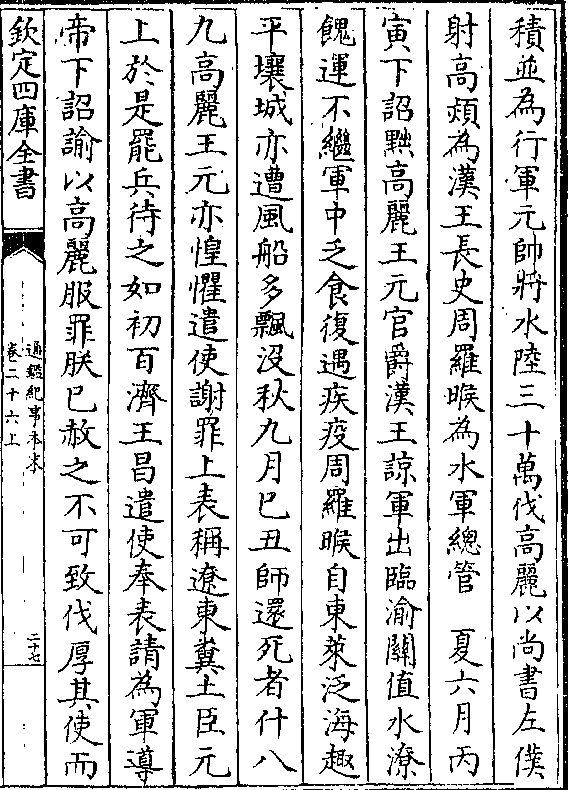 積並為行軍元帥將水陸三十萬伐高麗以尚書左僕
射高熲為漢王長史周羅睺為水軍總管　夏六月丙
寅下詔黜高麗王元官爵漢王諒軍出臨渝關值水潦
餽運不繼軍中乏食復遇疾疫周羅睺自東萊泛海趣
平壤城亦遭風船多飄沒秋九月己丑師還死者什八
九高麗王元亦惶懼遣使謝罪上表稱遼東糞土臣元
上於是罷兵待之如初百濟王昌遣使奉表請為軍導
帝下詔諭以高麗服罪朕已赦之不可致伐厚其使而
欽定四庫全書
通鑑紀事本末
卷二十六上
二十七